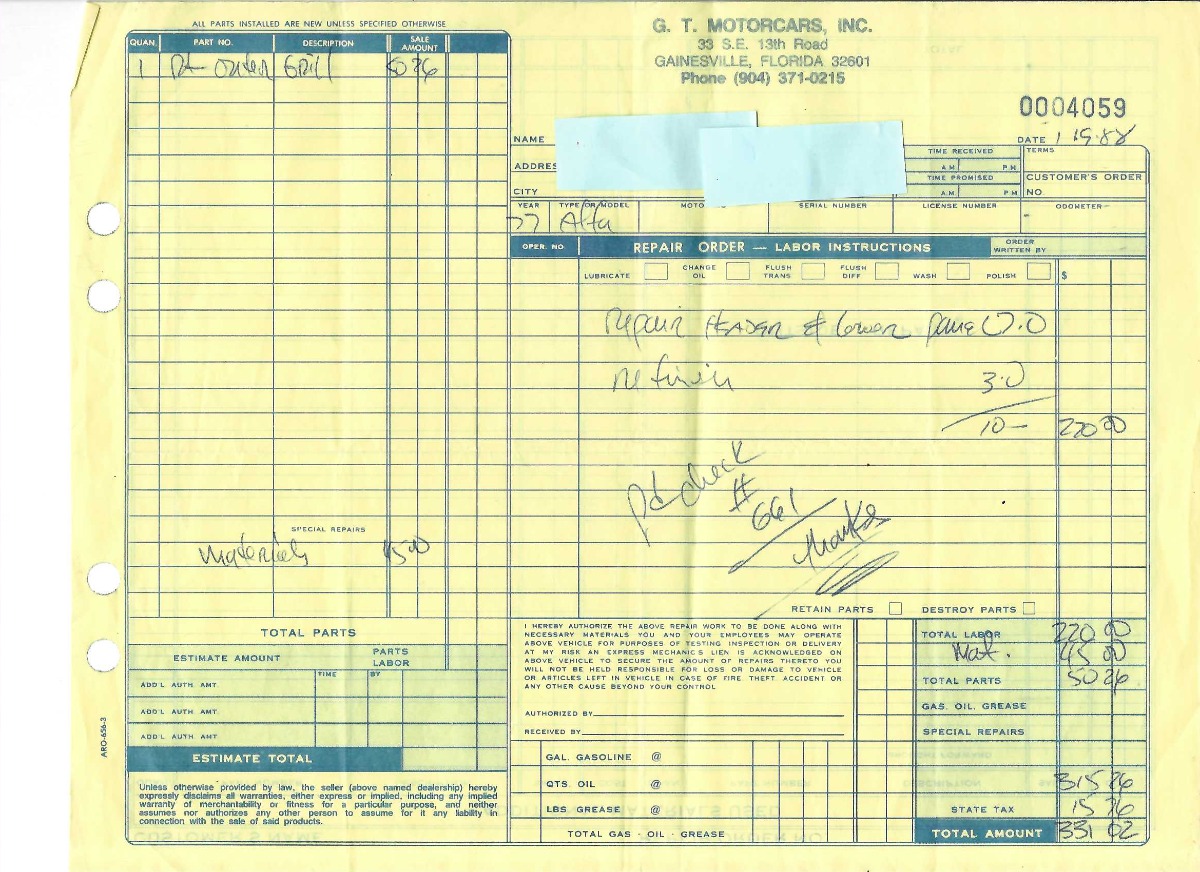 ALL PARTS INSTALLED ARE NEW UNLESS SPECIFIED OTHERWISE
G. T. MOTORCARS, INC.
33 S.E. 13th Road
GAINESVILLE, FLORIDA 32601
Phone (904) 371-0215
0004059
QUAN. PART NO. DESCRIPTION SALE AMOUNT
1 Grill 50 26
NAME
DATE 1 19-88
ADDRES
CITY
TIME RECEIVED A.M. P.M.
TIME PROMISED A.M. P.M.
TERMS
CUSTOMER'S ORDER NO.
YEAR TYPE OR MODEL MOTO SERIAL NUMBER LICENSE NUMBER ODOMETER
77 Alfa
OPER. NO. REPAIR ORDER — LABOR INSTRUCTIONS ORDER WRITTEN BY
LUBRICATE CHANGE OIL FLUSH TRANS FLUSH DIFF WASH POLISH $
repair HEADER & lower panel 7.0
refinish 3.0
10— 220 00
Pd check # 661
thanks
SPECIAL REPAIRS
Materials 45 00
RETAIN PARTS DESTROY PARTS
TOTAL PARTS
ESTIMATE AMOUNT PARTS LABOR
TIME BY
ADD'L AUTH. AMT.
ADD'L AUTH. AMT.
ADD'L AUTH. AMT.
ESTIMATE TOTAL
ARO-656-3
Unless otherwise provided by law, the seller (above named dealership) hereby
expressly disclaims all warranties, either express or implied, including any implied
warranty of merchantability or fitness for a particular purpose, and neither
assumes nor authorizes any other person to assume for it any liability in
connection with the sale of said products.
I HEREBY AUTHORIZE THE ABOVE REPAIR WORK TO BE DONE ALONG WITH
NECESSARY MATERIALS YOU AND YOUR EMPLOYEES MAY OPERATE
ABOVE VEHICLE FOR PURPOSES OF TESTING INSPECTION OR DELIVERY
AT MY RISK AN EXPRESS MECHANICS LIEN IS ACKNOWLEDGED ON
ABOVE VEHICLE TO SECURE THE AMOUNT OF REPAIRS THERETO YOU
WILL NOT BE HELD RESPONSIBLE FOR LOSS OR DAMAGE TO VEHICLE
OR ARTICLES LEFT IN VEHICLE IN CASE OF FIRE THEFT ACCIDENT OR
ANY OTHER CAUSE BEYOND YOUR CONTROL
AUTHORIZED BY
RECEIVED BY
GAL. GASOLINE @
QTS. OIL @
LBS. GREASE @
TOTAL GAS - OIL - GREASE
TOTAL LABOR 220 00
Mat. 45 00
TOTAL PARTS 50 26
GAS, OIL, GREASE
SPECIAL REPAIRS
315 26
STATE TAX 15 76
TOTAL AMOUNT 331 02